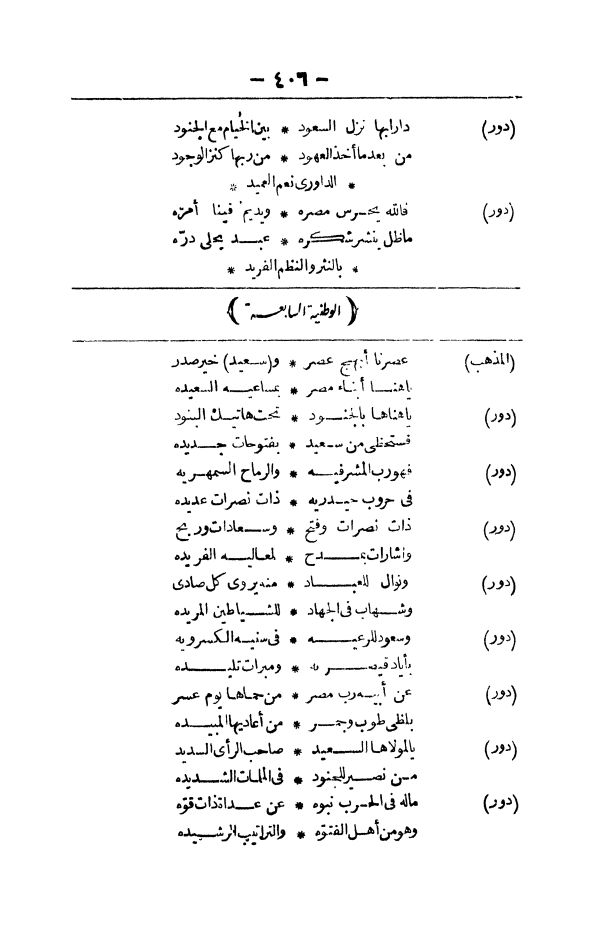 - ٤٠٦ -
(دور) دارابها نزل السعود * بين الخيام مع الجنود
من بعدما أخذ العهود * من ربها كنز الوجود
* الداورى نعم العميد *
(دور) فالله يحرس مصره * ويديم فينا أمره
ماظل ينشر شكره * عبد يحلى درّه
* بالنثر والنظم الفريد *
﴿الوطنية السابعة﴾
(المذهب) عصرنا أبهج عصر * و(سعيد) خير صدر
ياهنا أبناء مصر * بمساعيه السعيده
(دور) ياهناها بالجنود * تحت هاتيك البنود
فستحظى من سعيد * بفتوحات جديده
(دور) فهو رب المشرفيه * والرماح السمهريه
فى حروب حيدريه * ذات نصرات عديده
(دور) ذات نصرات وفتح * وسعادات وربح
واشارات بمدح * لمعاليه الفريده
(دور) ونوال للعباد * منه يروى كل صادى
وشهاب فى الجهاد * للشياطين المريده
(دور) وسعود للرعيه * فى سنيه الكسرويه
بأياد قيصريه * ومبرات تليده
(دور) عن أبيه رب مصر * من حماها يوم عسر
بلظى طوب وجمر * من أعاديها المبيده
(دور) يالمولاها السعيد * صاحب الرأى السديد
من نصير للجنود * فى الملمات الشديده
(دور) ماله فى الحرب نبوه * عن عداة ذات قوّه
وهو من أهل الفتوّه * والتراتيب الرشيده